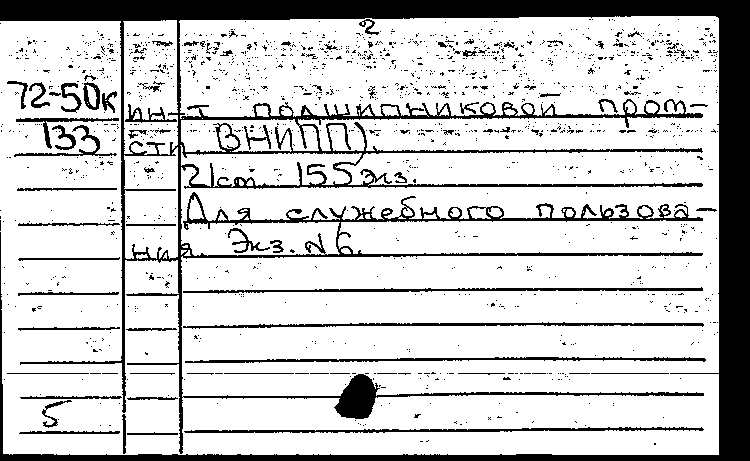 2
72-50к ин-т подшипниковой пром-
133 сти. ВНИПП).
21 ст. 155 экз.
Для служебного пользова-
ния. Экз. N 6.
5